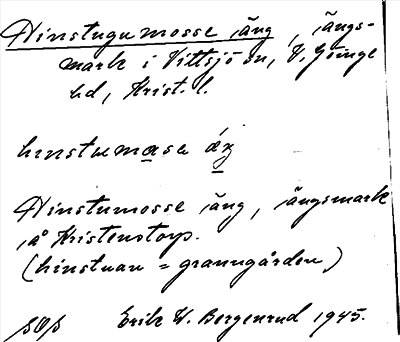 Hinstugumosse äng, ängs-
mark i Vittsjö sn, V. Göinge
hd, Krist. l.
hınstuemasa áɳ
Hinstumosse äng, ängsmark
på Kristenstorp.
(hinstuan = granngården)
Erik W. Bergenrud 1945.